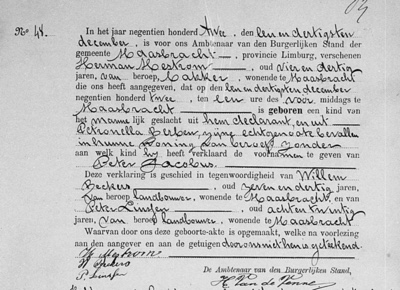 No. 48.
In het jaar negentien honderd twee, den een en dertigsten
december, is voor ons Ambtenaar van den Burgerlijken Stand der
gemeente Maasbracht, provincie Limburg, verschenen
Herman Mestrom, oud vier en dertig
jaren, van beroep, bakker, wonende te Maasbracht
die ons heeft aangegeven, dat op den een en dertigsten december
negentien honderd twee, ten een ure des voor middags te
Maasbracht is geboren een kind van
het mannelijk geslacht uit hem declarant, en uit
Petronella Beben, zijne echtgenoote bevallen
in hunne woning van beroep zonder
aan welk kind hij heeft verklaard de voornamen te geven van
Peter Jacobus.
Deze verklaring is geschied in tegenwoordigheid van Willem
Beckers, oud zeven en dertig jaren,
van beroep landbouwer, wonende te Maasbracht, en van
Peter Linssen, oud acht en twintig
jaren, van beroep landbouwer, wonende te Maasbracht
Waarvan door ons deze geboorte-akte is opgemaakt, welke na voorlezing
aan den aangever en aan de getuigen door ons met hen is geteekend.
H Mestrom
W Beckers
P Linssen
De Ambtenaar van den Burgerlijken Stand,
H. van de Venne